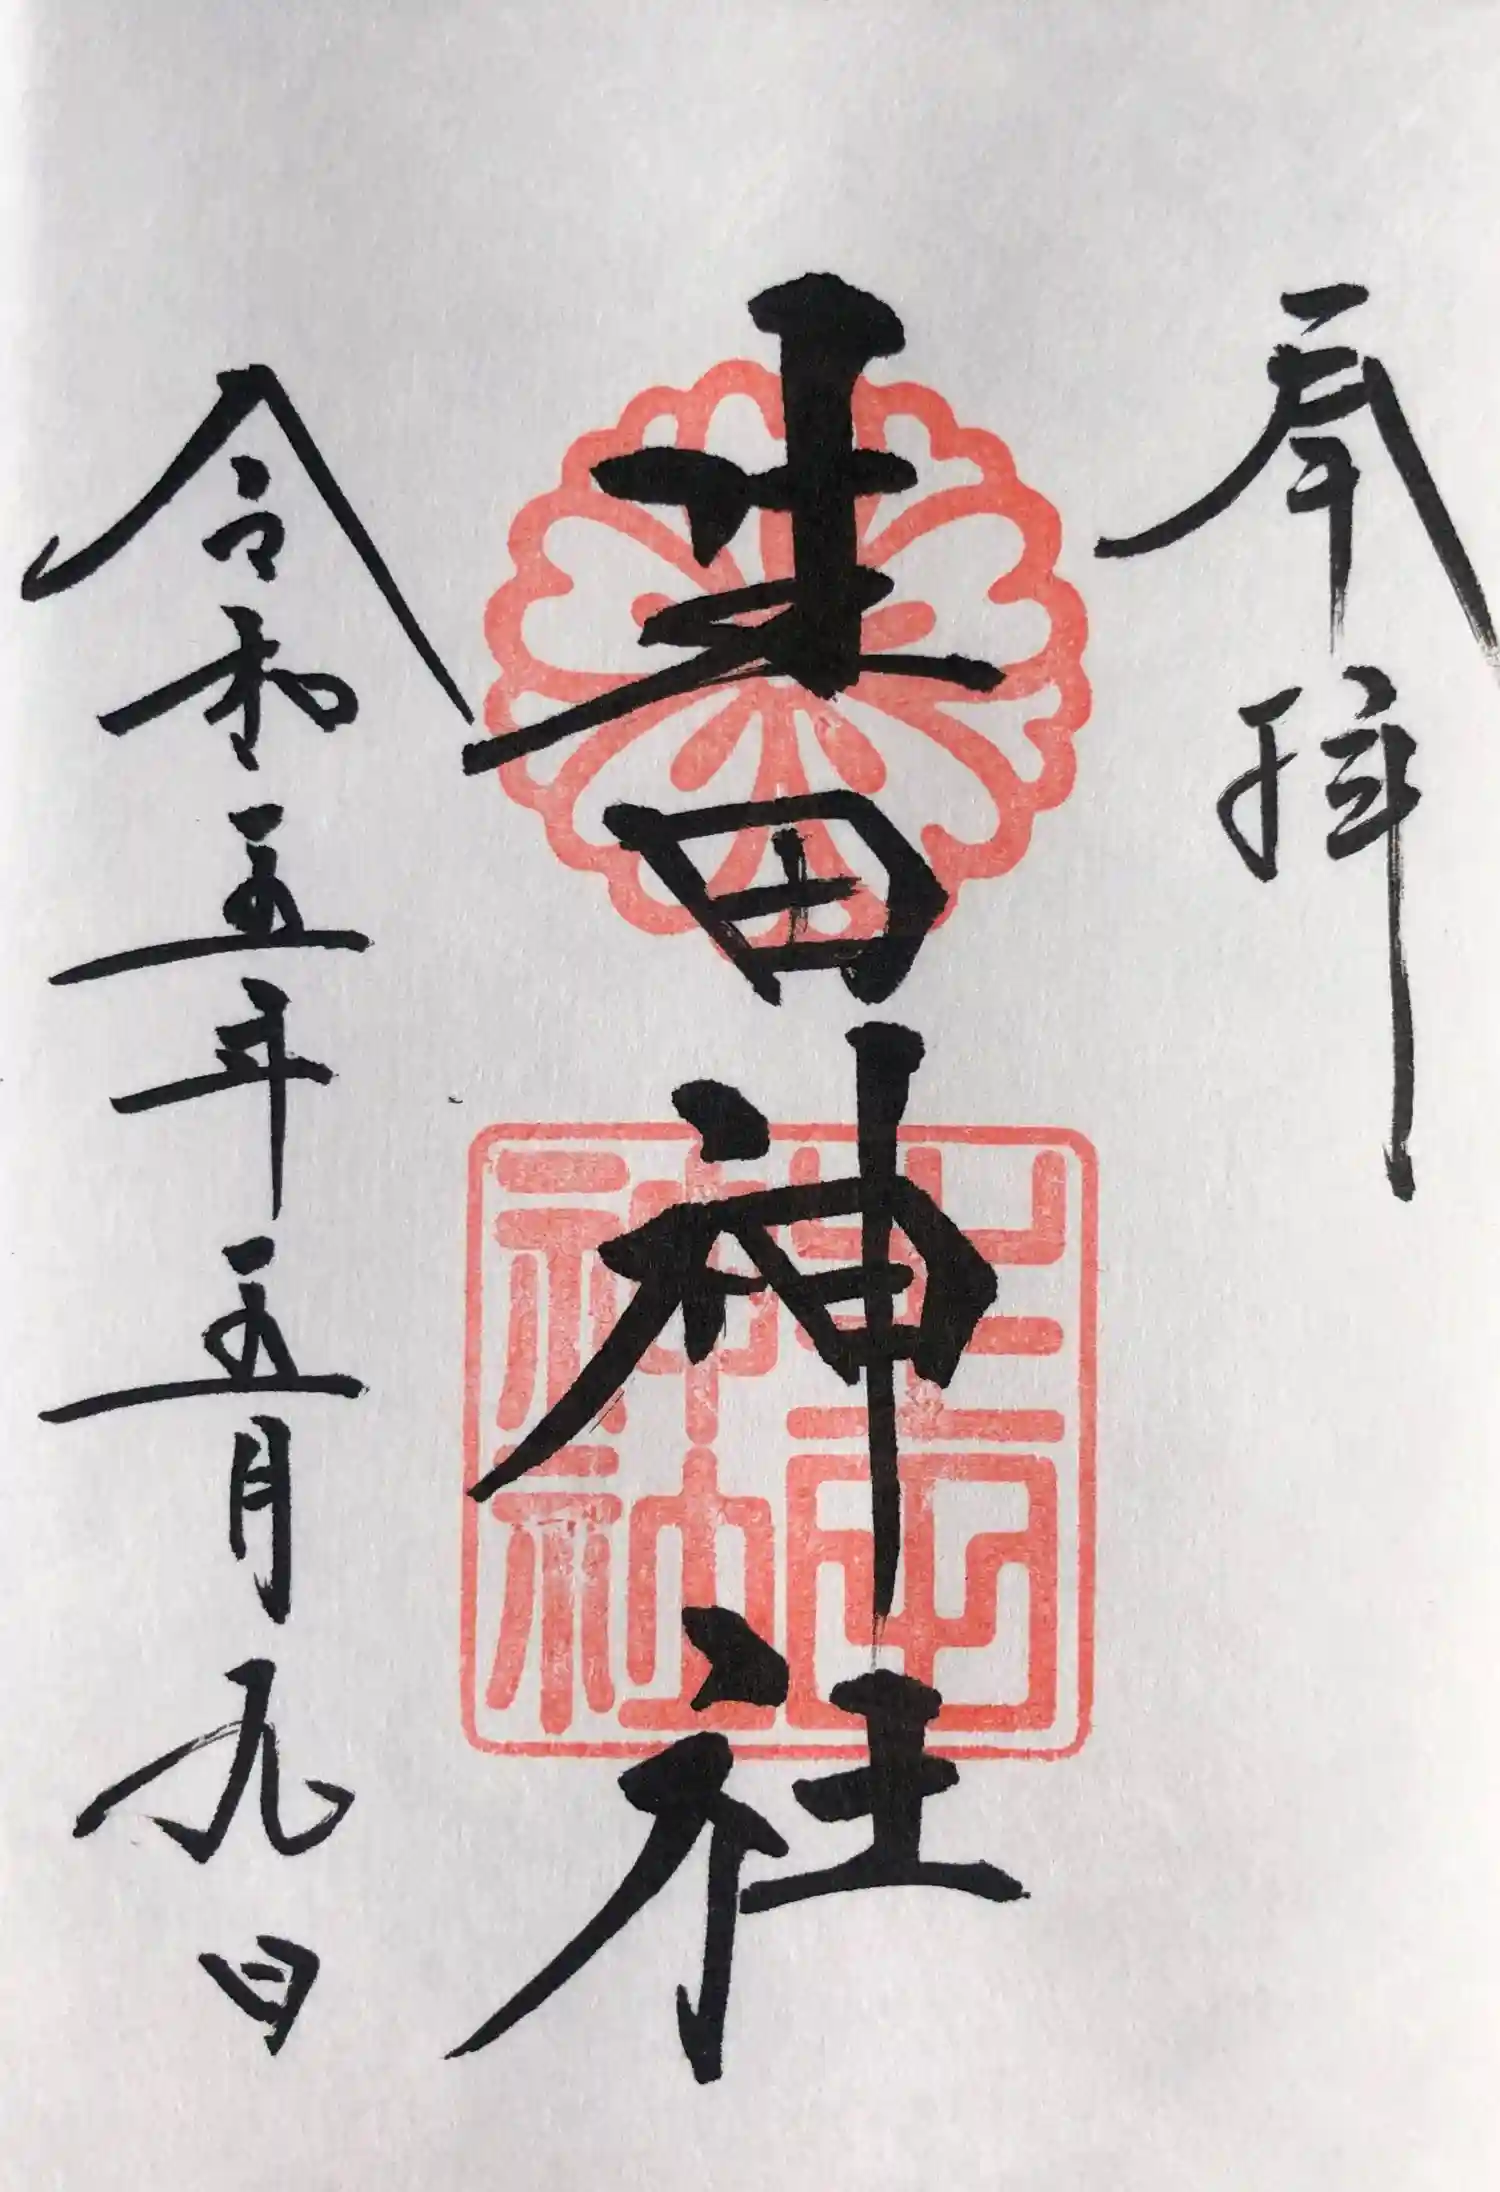 奉拝
生田神社
生田
神社
令和五年五月九日